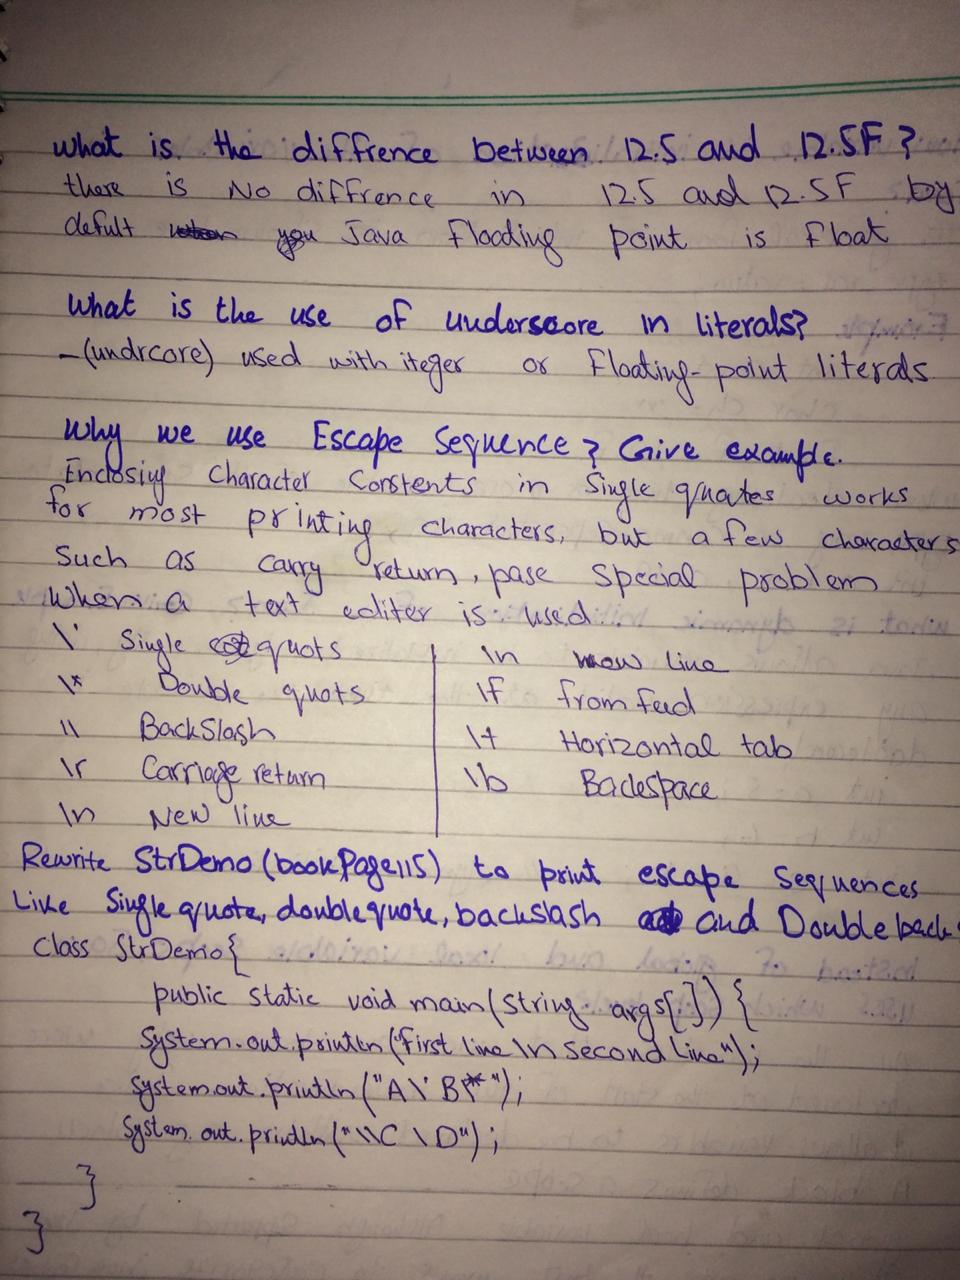 what is the diffrence between 12.5 and 12.5F?
there is No diffrence in 12.5 and 12.5F by
defult you Java floading point is float
what is the use of underscore in literals?
_(undrcore) used with iteger or floating-point literals
Why we use Escape Sequence? Give example.
Enclosing Character Constents in Single quates works
for most printing characters, but a few characters
Such as carry return, pase Special problem
When a text editer is used.
\' Single quots
\" Double quots
\\ BackSlash
\r Carriage return
\n New line
\n new line
\f from feed
\t Horizontal tab
\b Backspace
Rewrite StrDemo(bookPage115) to print escape Sequences
Like Single quote, double quote, backslash and Double back
Class StrDemo{
public static void main(String args[]) {
System.out.println("First line \n Second Line");
System.out.println("A\' B\"");
System.out.println("\\C \D");
}
}